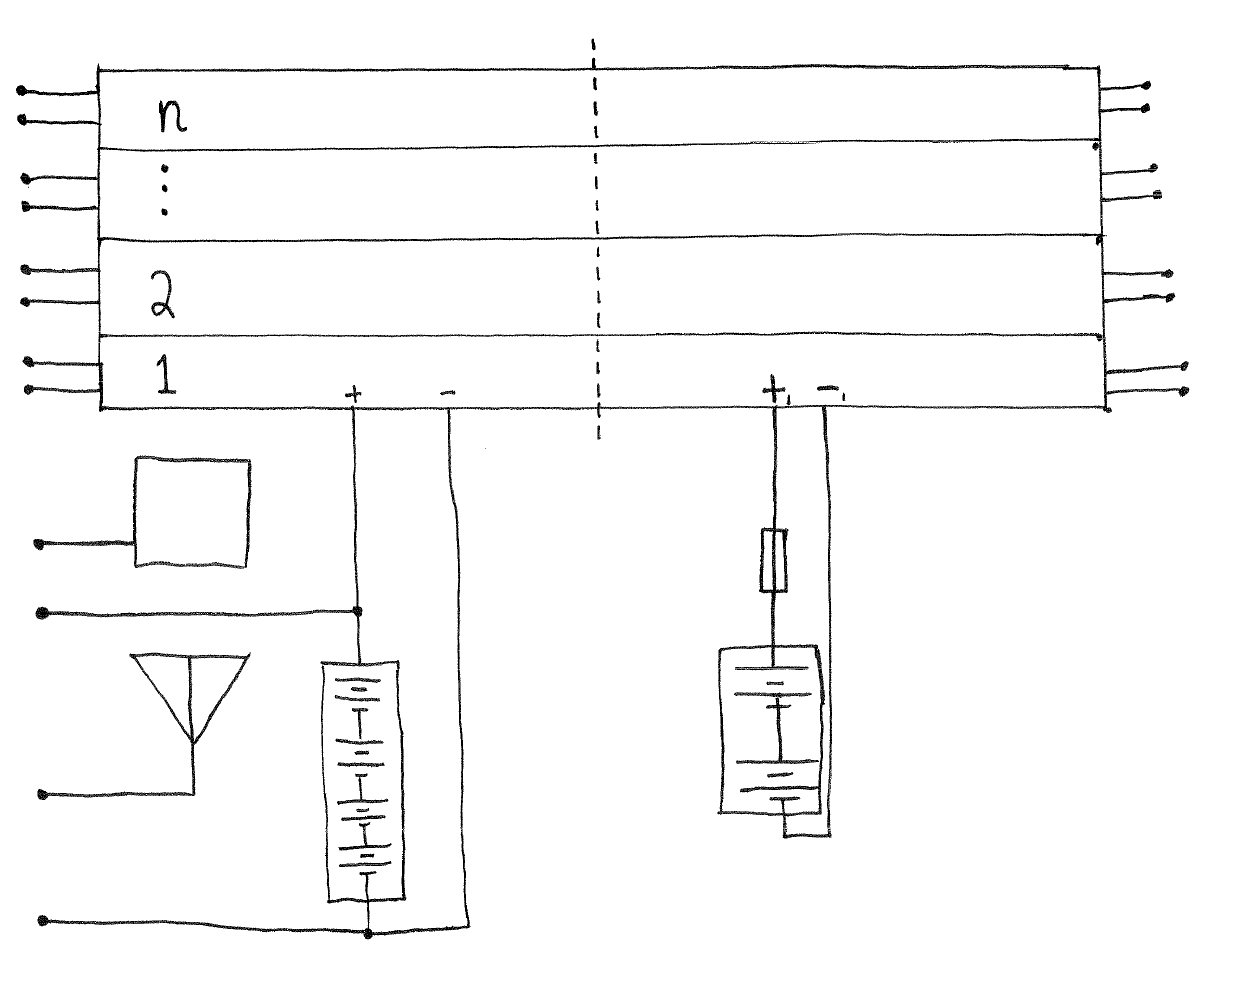 n
⋮
2
1
+ - + -